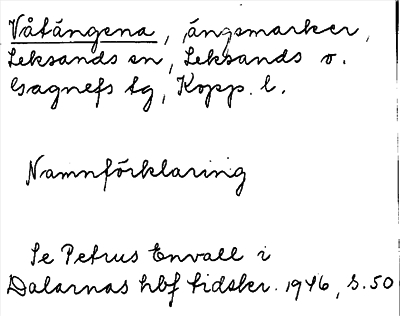 Våtängena, ängsmarker,
Leksands sn, Leksands o.
Gagnefs tg, Kopp. l.
Namnförklaring
Se Petrus Envall i
Dalarnas hbf tidskr. 1946, s. 50